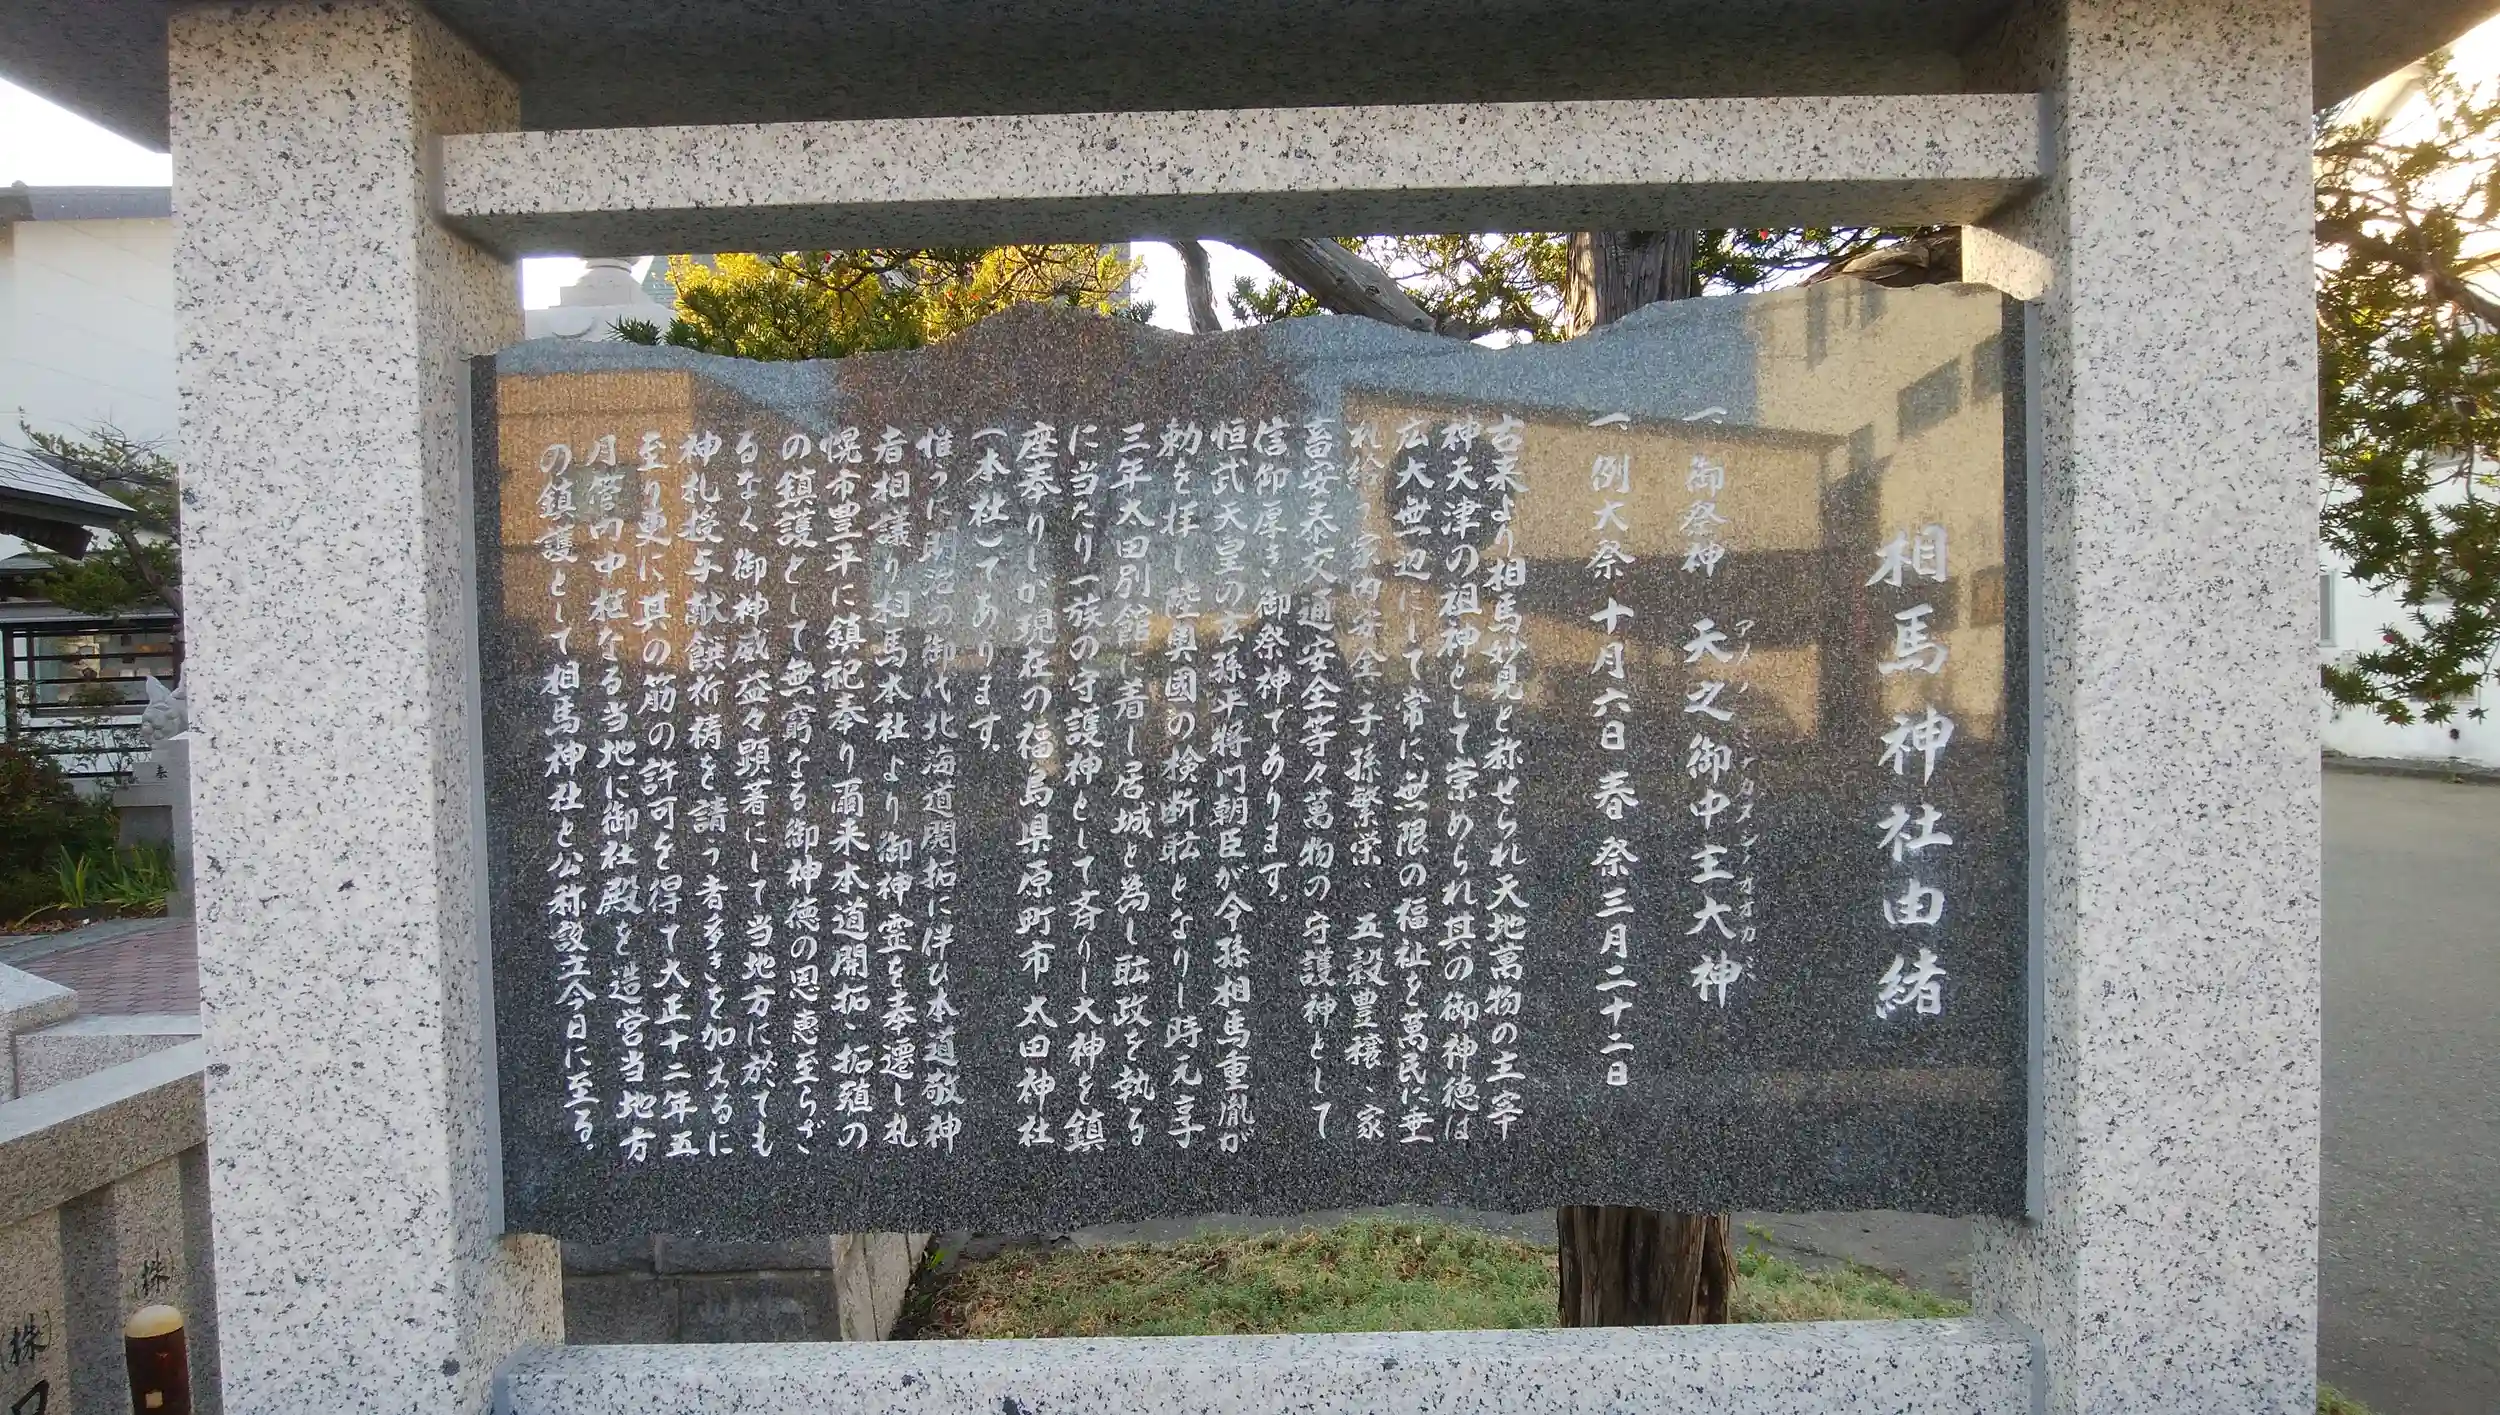 相馬神社由緒
一、御祭神 天之御中主大神
アメノミナカヌシノオオカミ
一、例大祭 十月六日 春祭 三月二十二日
古来より相馬妙見と称せられ天地萬物の主宰
神天津の祖神として崇められ其の御神徳は
広大無辺にして常に無限の福祉を萬民に垂
れ給う家内安全、子孫繁栄、五穀豊穣、家
畜安泰交通安全等々萬物の守護神として
信御厚き御祭神であります。
恒武天皇の玄孫平将門朝臣が令孫相馬重胤が
勅を拝し陸奥國の検断職となりし時元亨
三年太田別館に着し居城と為し職政を執る
に当たり一族の守護神として斉りし大神を鎮
座奉りしが現在の福島県原町市太田神社
(本社)てあります。
惟うに明治の御代北海道開拓に伴ひ本道敬神
者相議り相馬本社より御神霊を奉遷し札
幌市豊平に鎮祀奉り爾来本道開拓、拓殖の
の鎮護として無窮なる御神徳の恩恵至らざ
るなく御神威益々顕著にして当地方に於ても
神札授与献饌祈祷を請う者多きを加えるに
至り更に其の筋の許可を得て大正十二年五
月管内中枢なる当地に御社殿を造営当地方
の鎮護として相馬神社と公称設立今日に至る。
株
(株)